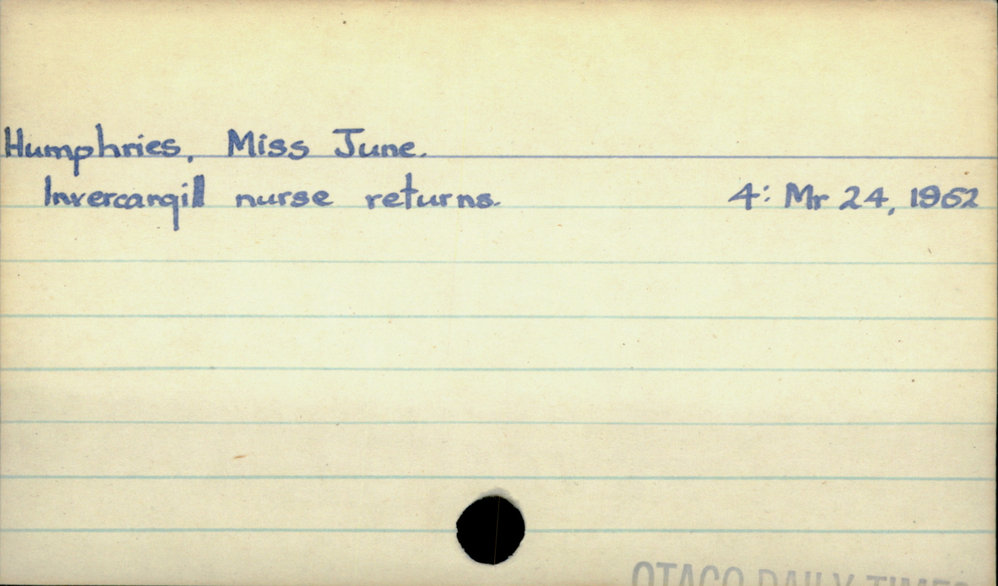 Humphries, Miss June.
Invercargill nurse returns. 4: Mr 24, 1962
OTAGO DAILY TIMES